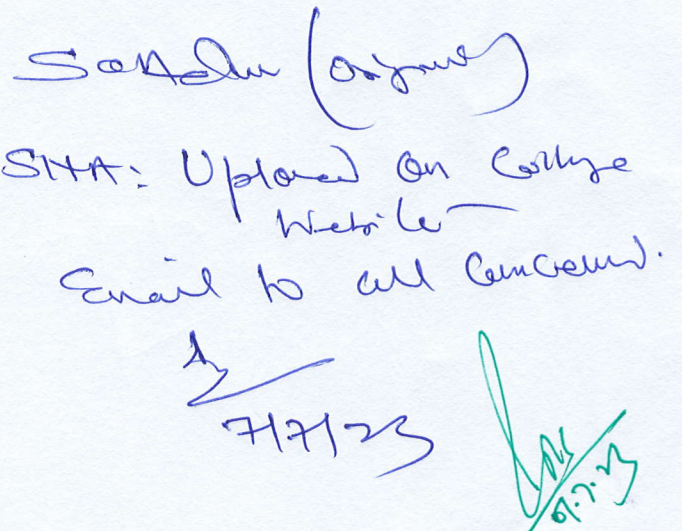 SO Admn (Original)
SHA: Upload on College
Website
Email to all Concerned.
7/7/23
07.7.23